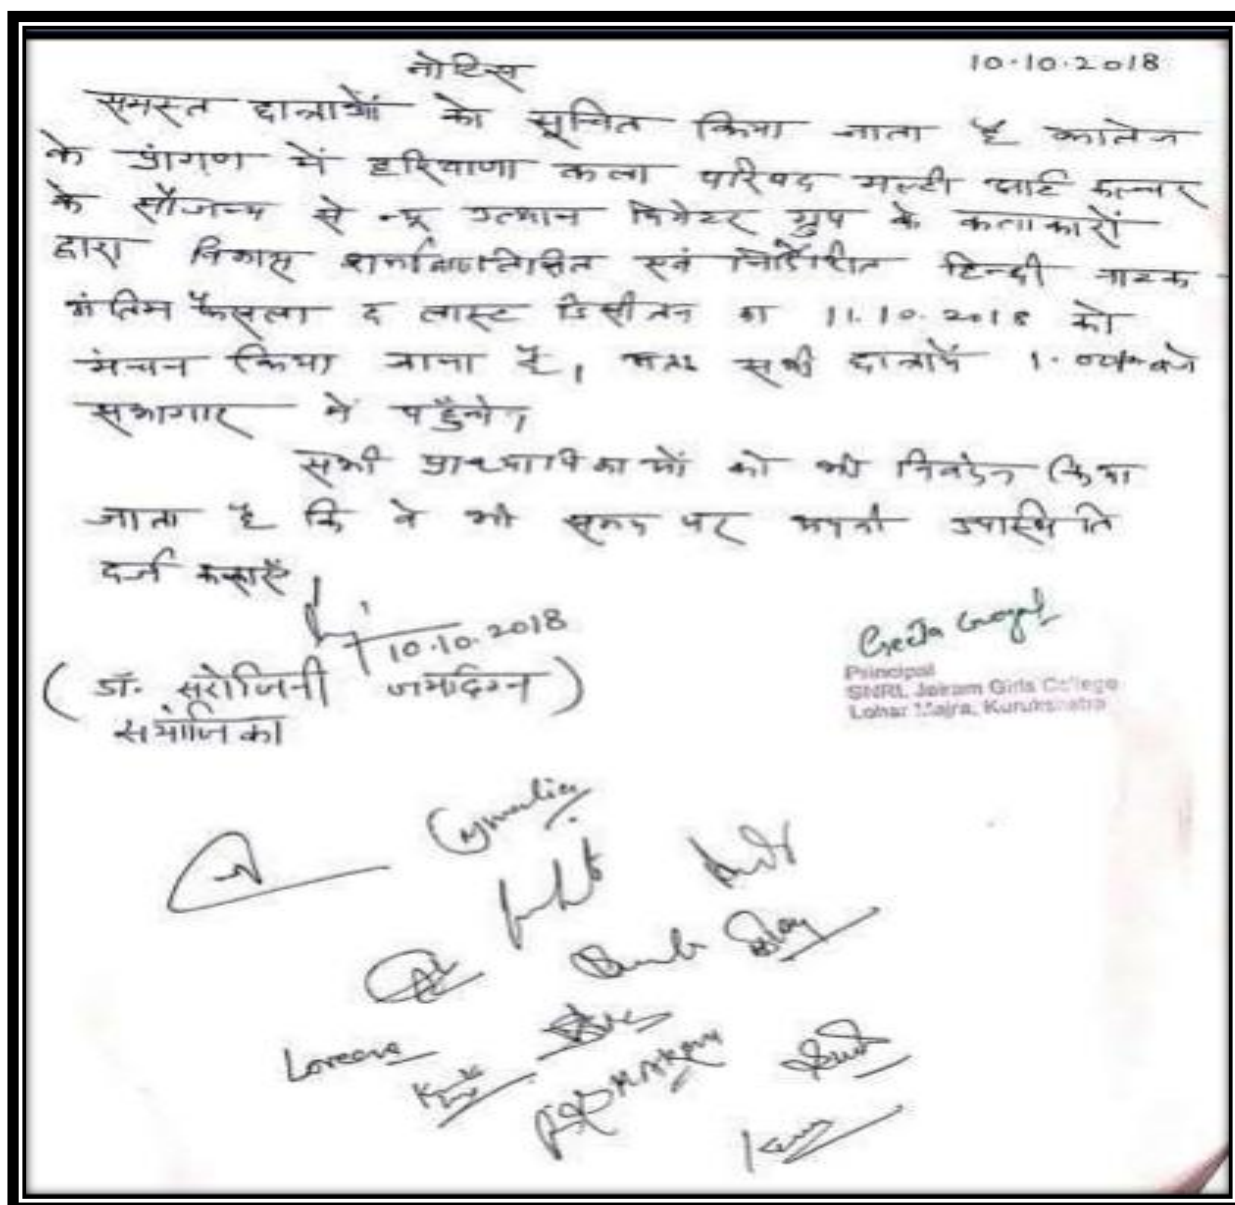 नोटिस 10.10.2018
समस्त छात्राओं को सूचित किया जाता है कालेज
के प्रांगण में हरियाणा कला परिषद मल्टी आर्ट कल्चर
के सौजन्य से न्यू उत्थान थियेटर ग्रुप के कलाकारों
द्वारा विकास शर्मा लिखित एवं निर्देशित हिन्दी नाटक
अंतिम फैसला द लास्ट डिसीजन का 11.10.2018 को
मंचन किया जाना है, अतः सभी छात्राएँ 1.00 बजे
सभागार में पहुँचे।
सभी प्राध्यापिकाओं को भी निवेदन किया
जाता है कि वे भी समय पर अपनी उपस्थिति
दर्ज कराएँ।
10.10.2018
Geeta Goyal
(डॉ. सरोजिनी जमदग्नि)
संयोजिका
Principal
SNRL Jairam Girls College
Lohar Majra, Kurukshetra
Loveena